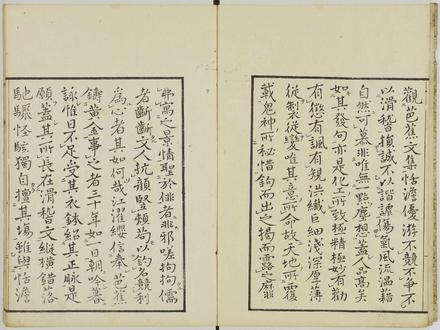 觀芭蕉文集恬澹優游不競不爭不
以滑稽損誠不以諧謔傷氣風流溫藉
自然可慕非唯無一點塵想蓋人品高矣
如其發句亦是化工所致極精極妙有勸
有懲有諷有規洪纖巨細淺深厚薄
從製從變唯其意所命故天地所覆
載鬼神所秘惜鉤而出之揭而露之靡
弗寓之景情聖於俳者非邪嗟拘拘儒
者斷斷文人抗顏豎類苟以釣名競利
爲心者其如何哉江淮纓信奉芭蕉
鑄黃金事之者三十年如一日朝唫暮
詠惟日不足受其衣鉢紹其正脉是
願蓋其所長在滑稽文縱橫錯落
馳驟怪駭獨自擅其場雖與恬澹